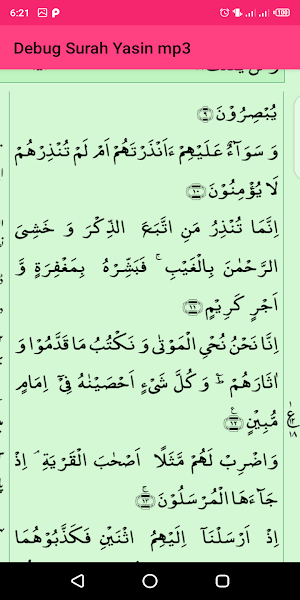 6:21
Debug Surah Yasin mp3
يُبْصِرُوْنَ ۝٩
وَ سَوَآءٌ عَلَيْهِمْ ءَاَنْذَرْتَهُمْ اَمْ لَمْ تُنْذِرْهُمْ
لَا يُؤْمِنُوْنَ ۝١٠
اِنَّمَا تُنْذِرُ مَنِ اتَّبَعَ الذِّكْرَ وَ خَشِىَ
الرَّحْمٰنَ بِالْغَيْبِ ۚ فَبَشِّرْهُ بِمَغْفِرَةٍ وَّ
اَجْرٍ كَرِيْمٍ ۝١١
اِنَّا نَحْنُ نُحْىِ الْمَوْتٰى وَ نَكْتُبُ مَا قَدَّمُوْا وَ
اٰثَارَهُمْ ؕ وَ كُلَّ شَىْءٍ اَحْصَيْنٰهُ فِىْۤ اِمَامٍ
مُّبِيْنٍ ۝١٢
ع
١٨
وَاضْرِبْ لَهُمْ مَّثَلًا اَصْحٰبَ الْقَرْيَةِ ۘ اِذْ
جَآءَهَا الْمُرْسَلُوْنَ ۝١٣
اِذْ اَرْسَلْنَاۤ اِلَيْهِمُ اثْنَيْنِ فَكَذَّبُوْهُمَا